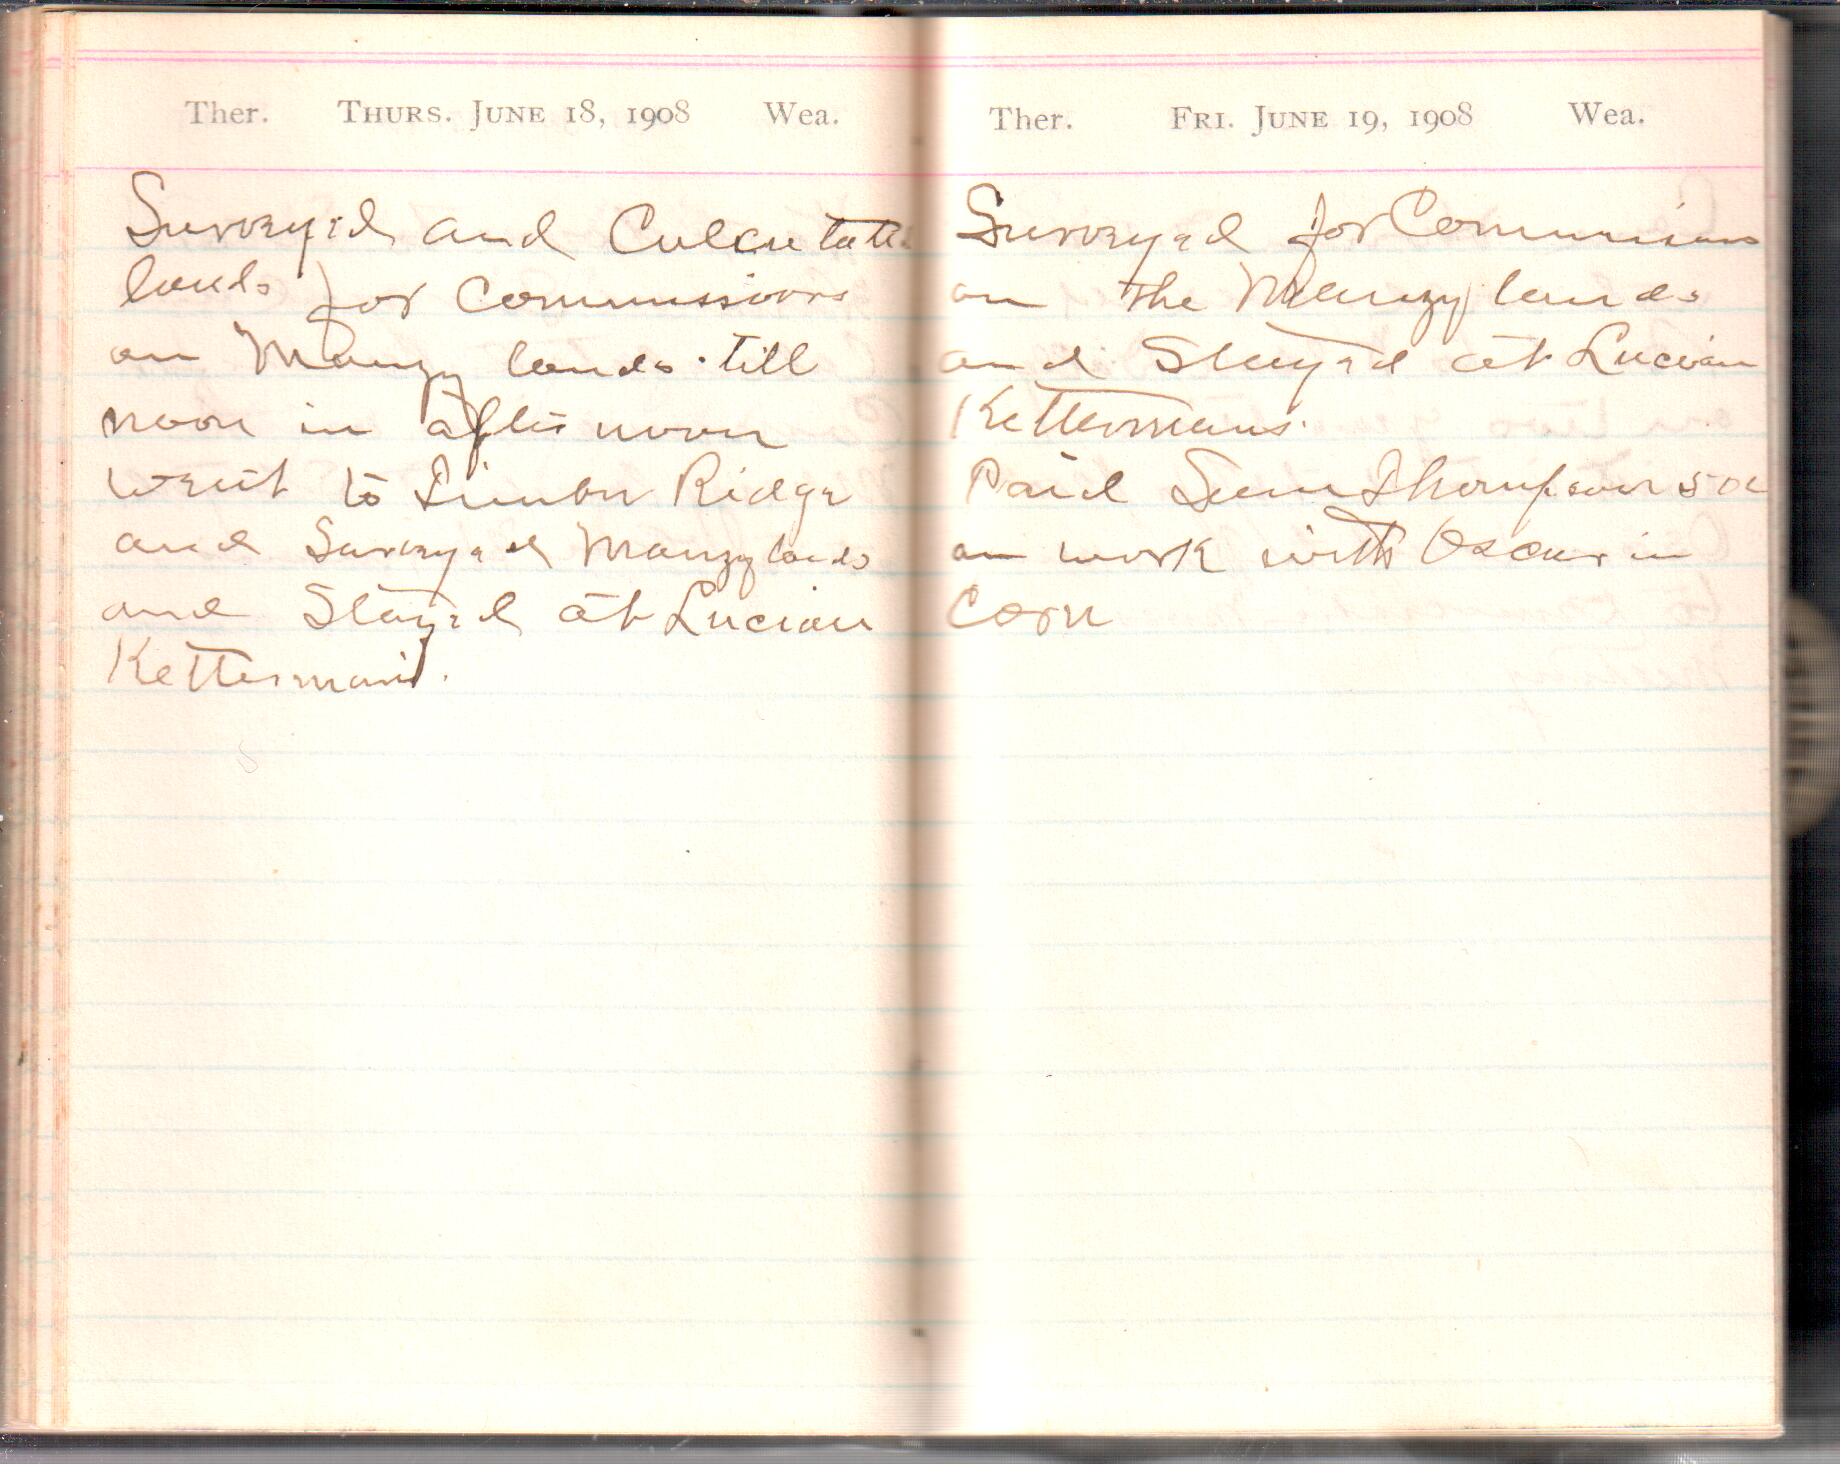 Ther. THURS. JUNE 18, 1908 Wea.
Surveyed and Calculated
lands for Commissiors
on Mauzy lands till
noon in after noon
went to Timber Ridge
and Surveyed Mauzy lands
and Stayed at Lucian
Kettermans.
Ther. FRI. JUNE 19, 1908 Wea.
Surveyed for Commissions
on the Mauzy lands
and Stayed at Lucian
Kettermans.
Paid Thompson 50c
on work with Oscar in
Corn